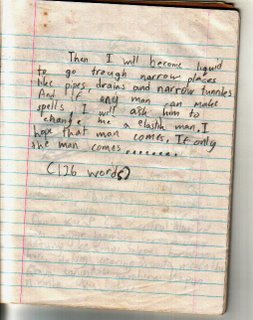 Then I will become liquid
to go trough narrow places
like pipes, drains and narrow tunnles
And if any man can make
spells I will ask him to
change me a elastik man. I
hope that man comes, If only
the man comes........
(126 words)